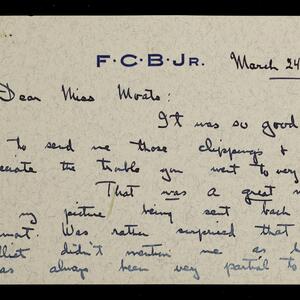 F·C·B·JR.
March 24
Dear Miss Moats:
It was so good
to send me those clippings &
ciate the trouble you went to very
That was a great
my picture being sent back
most. Was rather surprised that
llist didn't mention me as
as always been very partial to